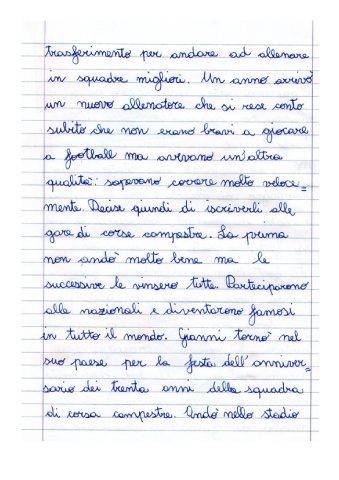 trasferimento per andare ad allenare
in squadre migliori. Un anno arrivò
un nuovo allenatore che si rese conto
subito che non erano bravi a giocare
a football ma avevano un'altra
qualità: sapevano correre molto veloce=
mente. Decise quindi di iscriverli alle
gare di corse campestre. La prima
non andò molto bene ma le
successive le vinsero tutte. Parteciparono
alle nazionali e diventarono famosi
in tutto il mondo. Gianni tornò nel
suo paese per la festa dell'anniver=
sario dei trenta anni della squadra
di corsa campestre. Andò nello stadio